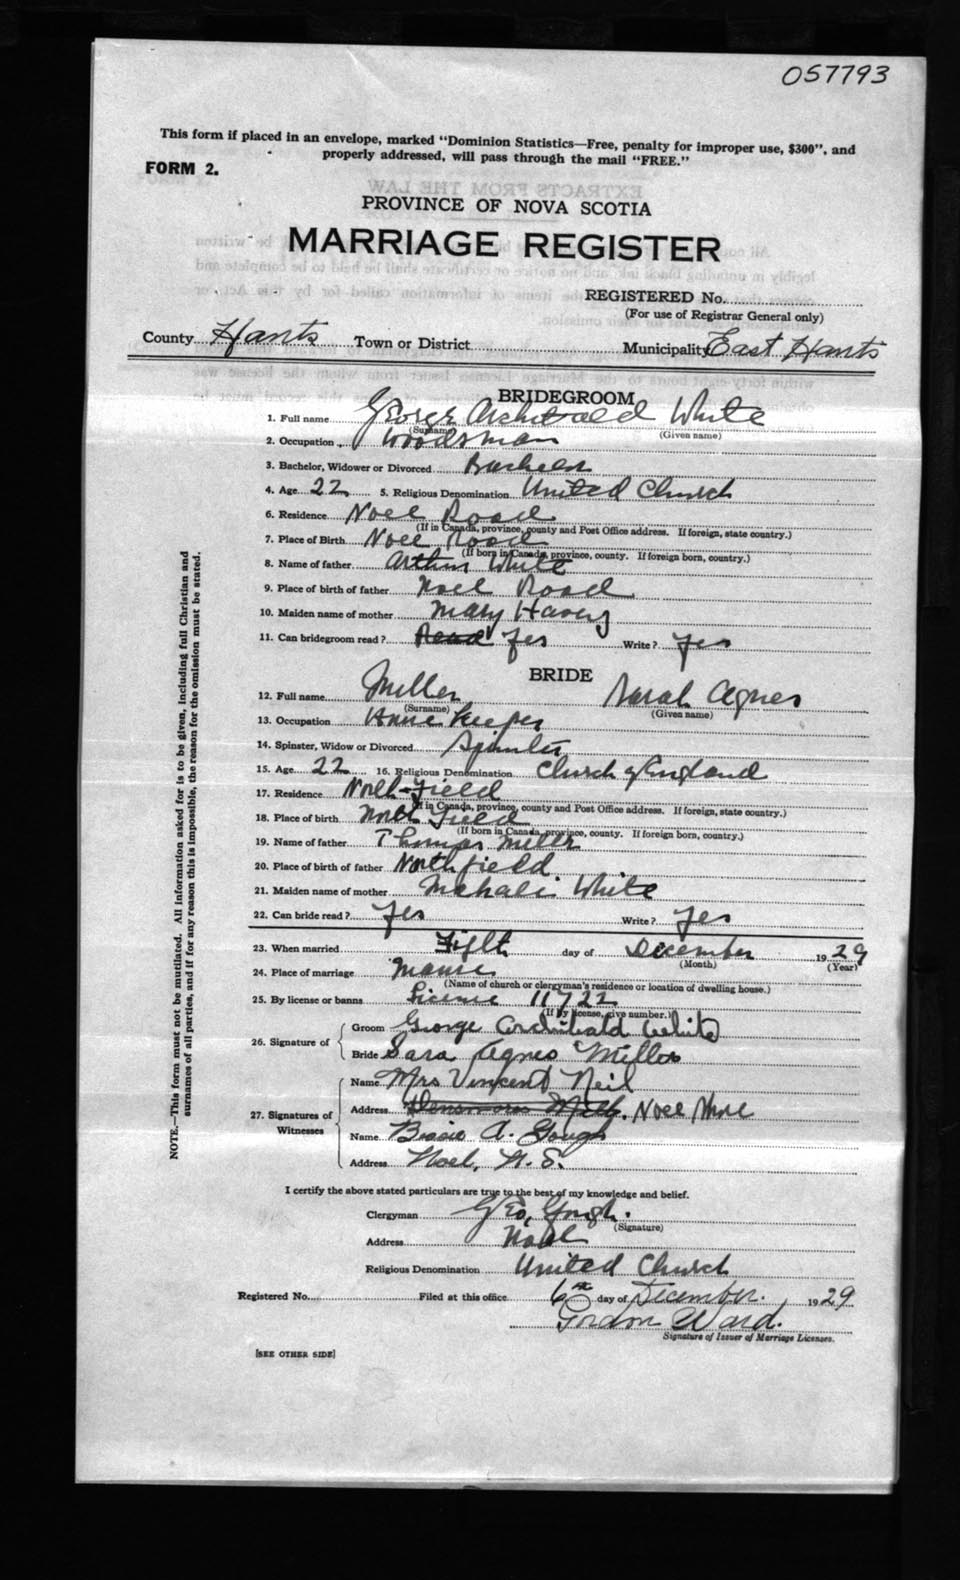 057793
This form if placed in an envelope, marked "Dominion Statistics—Free, penalty for improper use, $300", and
properly addressed, will pass through the mail "FREE."
FORM 2.
PROVINCE OF NOVA SCOTIA
MARRIAGE REGISTER
REGISTERED No.
(For use of Registrar General only)
County Hants Town or District Municipality East Hants
BRIDEGROOM
1. Full name George Archibald White
(Surname) (Given name)
2. Occupation Woodsman
3. Bachelor, Widower or Divorced Bachelor
4. Age 22 5. Religious Denomination United Church
6. Residence Noel Road
(If in Canada, province, county and Post Office address. If foreign, state country.)
7. Place of Birth Noel Road
(If born in Canada, province, county. If foreign born, country.)
8. Name of father Arthur White
9. Place of birth of father Noel Road
10. Maiden name of mother Mary
11. Can bridegroom read? Read Yes Write? Yes
BRIDE
12. Full name Miller Sarah Agnes
(Surname) (Given name)
13. Occupation Keeper
14. Spinster, Widow or Divorced Spinster
15. Age 22 16. Religious Denomination Church of England
17. Residence North-Field
(If in Canada, province, county and Post Office address. If foreign, state country.)
18. Place of birth North Field
(If born in Canada, province, county. If foreign born, country.)
19. Name of father Thomas Miller
20. Place of birth of father Northfield
21. Maiden name of mother White
22. Can bride read? Yes Write? Yes
23. When married Fifth day of December 1929
(Month) (Year)
24. Place of marriage Manse
(Name of church or clergyman's residence or location of dwelling house.)
25. By license or banns License 11722
(If by license, give number.)
26. Signature of
Groom George Archibald White
Bride Sara Agnes Miller
27. Signatures of Witnesses
Name Mrs Vincent Neil
Address Densmores Mills. Noel Shore
Name Bessie A. Gough
Address Noel, N. S.
I certify the above stated particulars are true to the best of my knowledge and belief.
Clergyman Geo. Gough.
(Signature)
Address Noel
Religious Denomination United Church
Registered No. Filed at this office 6th day of December. 1929
Gordon Ward.
Signature of Issuer of Marriage Licenses.
[SEE OTHER SIDE]
NOTE.—This form must not be mutilated. All information asked for is to be given, including full Christian and
surnames of all parties, and if for any reason this is impossible, the reason for the omission must be stated.